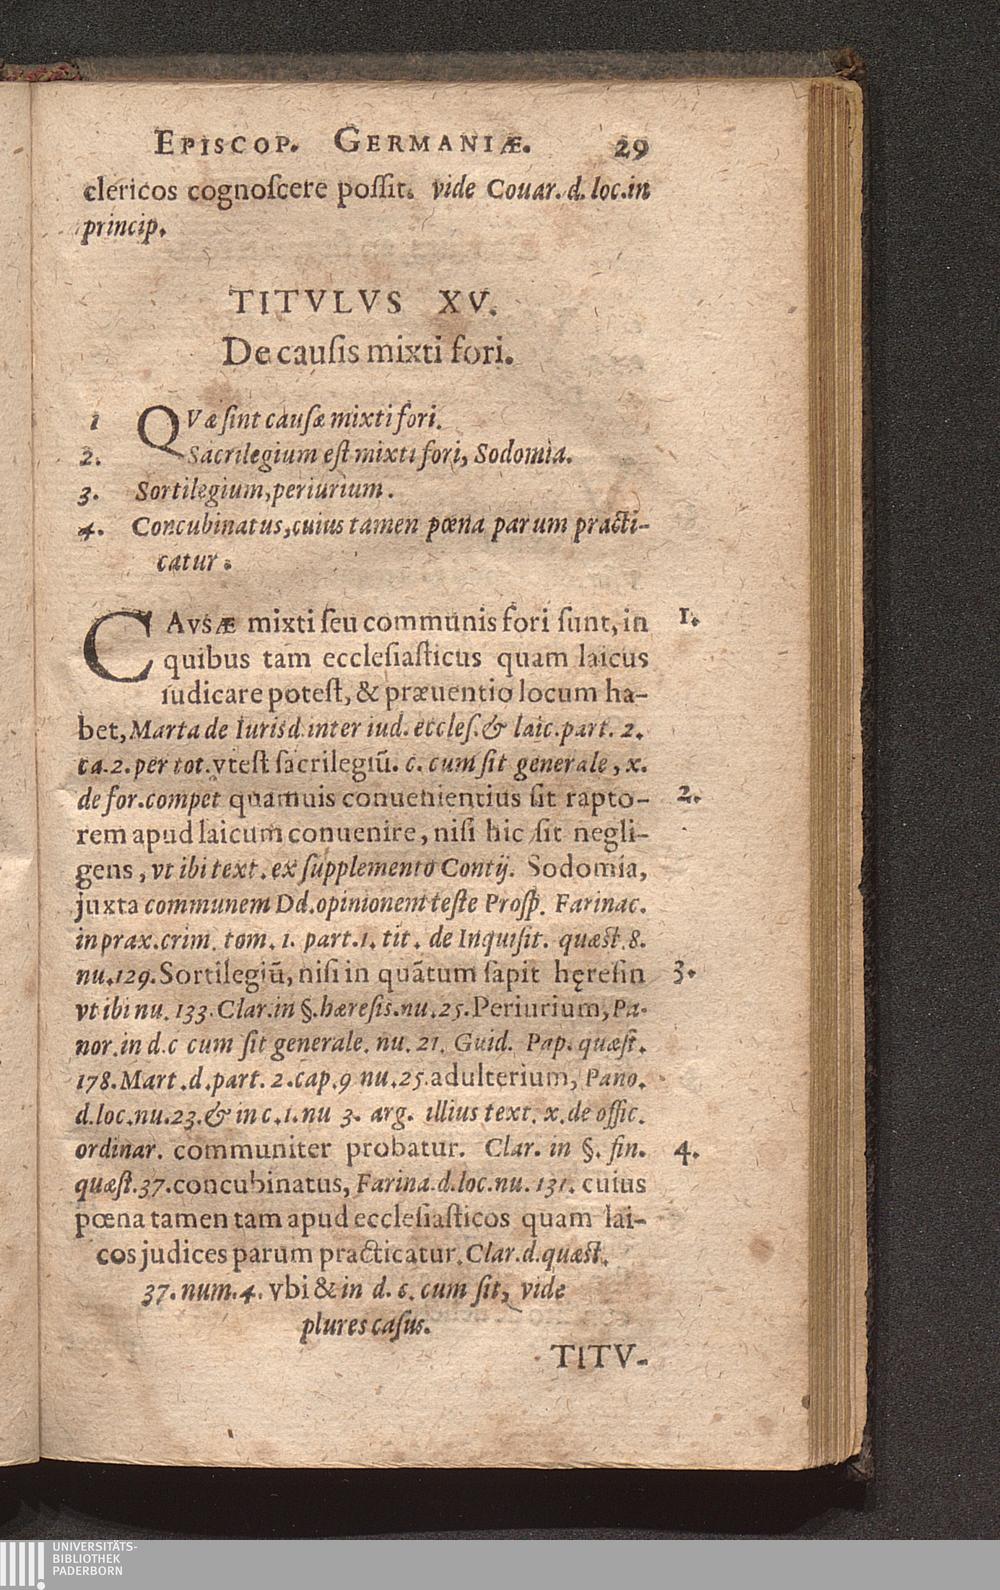 EPISCOP. GERMANIÆ. 29
clericos cognoſcere poſſit. vide Couar. d. loc. in
princip.
TITVLVS XV.
De cauſis mixti fori.
1 QVæ ſint cauſæ mixti fori.
2. Sacrilegium eſt mixti fori, Sodomia.
3. Sortilegium, periurium.
4. Concubinatus, cuius tamen pœna parum practi-
catur.
CAVSÆ mixti ſeu communis fori ſunt, in 1.
quibus tam eccleſiaſticus quam laicus
iudicare poteſt, & præuentio locum ha-
bet, Marta de Iurisd. inter iud. eccleſ. & laic. part. 2.
ca. 2. per tot. vt eſt ſacrilegiū. c. cum ſit generale, x.
de for. compet quamuis conuenientius ſit rapto- 2.
rem apud laicum conuenire, niſi hic ſit negli-
gens, vt ibi text. ex ſupplemento Contij. Sodomia,
juxta communem Dd. opinionem teſte Proſp. Farinac.
in prax. crim. tom. 1. part. 1. tit. de Inquiſit. quæſt. 8.
nu. 129. Sortilegiū, niſi in quātum ſapit hęreſin 3.
vt ibi nu. 133. Clar. in §. hæreſis. nu. 25. Periurium, Pa-
nor. in d. c cum ſit generale. nu. 21. Guid. Pap. quæſt.
178. Mart. d. part. 2. cap. 9 nu. 25. adulterium, Pano.
d. loc. nu. 23. & in c. 1. nu 3. arg. illius text. x. de offic.
ordinar. communiter probatur. Clar. in §. fin. 4.
quæſt. 37. concubinatus, Farina. d. loc. nu. 131. cuius
pœna tamen tam apud eccleſiaſticos quam lai-
cos judices parum practicatur. Clar. d. quæſt.
37. num. 4. vbi & in d. c. cum ſit, vide
plures caſus.
TITV-
UNIVERSITÄTS-
BIBLIOTHEK
PADERBORN